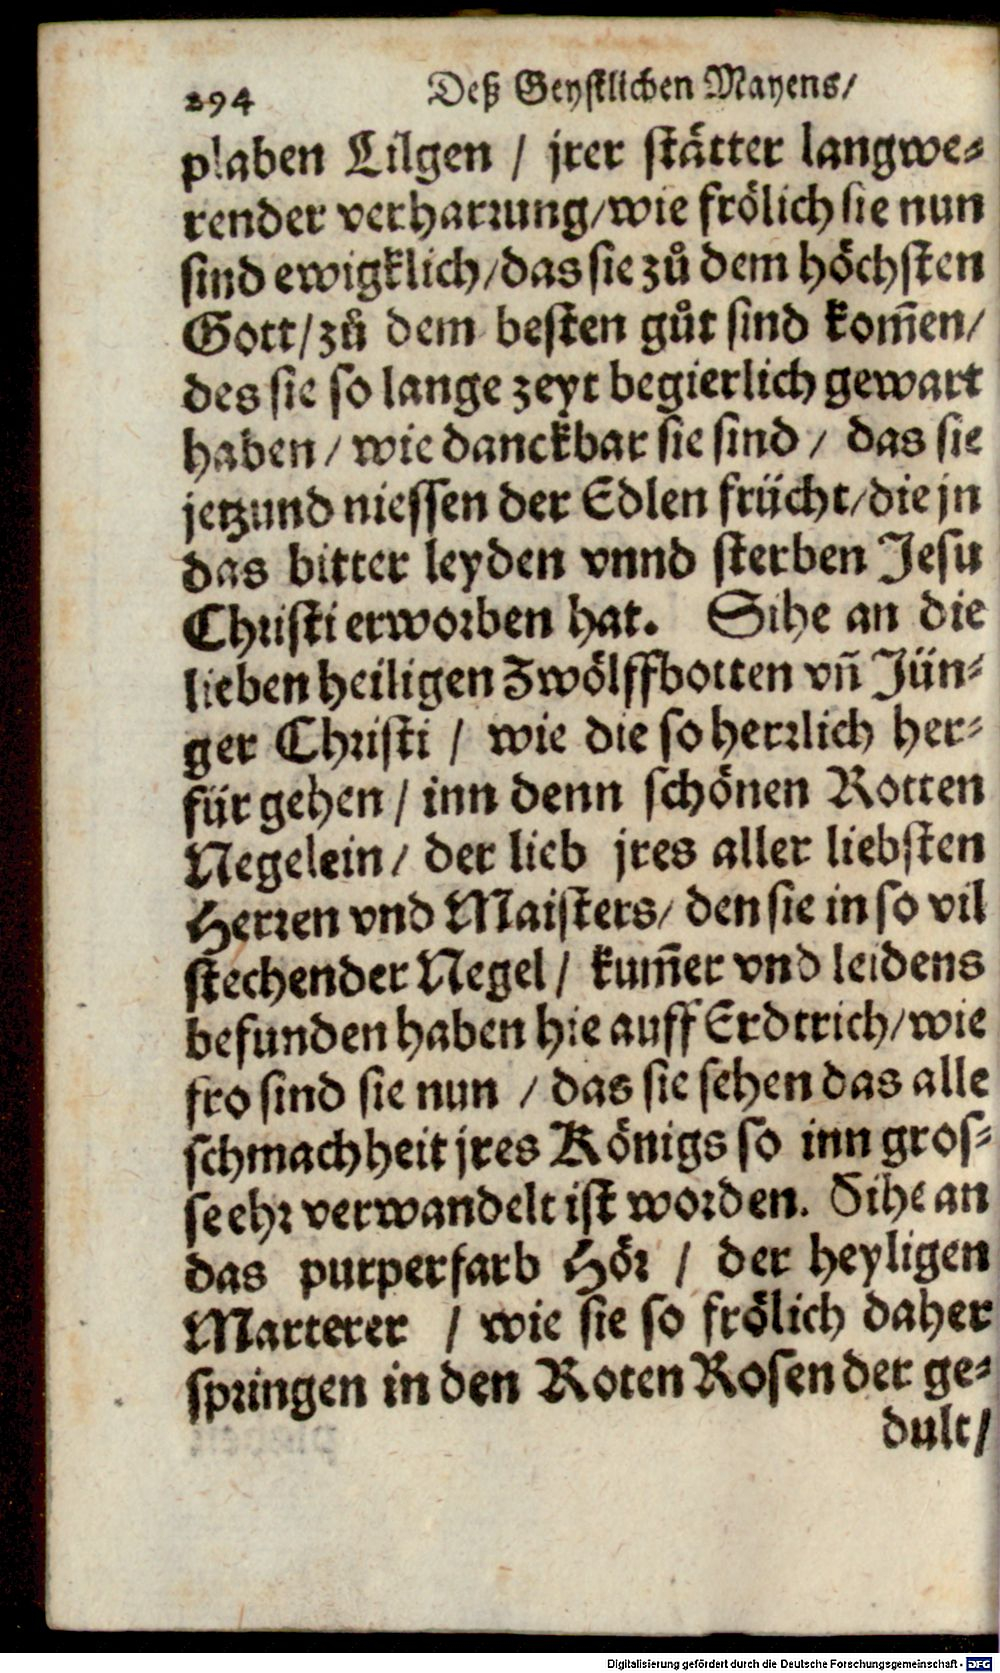 294 Deß Geystlichen Mayens/
plaben Lilgen / jrer stätter langwe-
render verharrung/wie frölich sie nun
sind ewigklich/das sie zů dem höchsten
Gott/zů dem besten gůt sind kom̃en/
des sie so lange zeyt begierlich gewart
haben/wie danckbar sie sind/ das sie
jetzund niessen der Edlen frücht/die jn
das bitter leyden vnnd sterben Jesu
Christi erworben hat. Sihe an die
lieben heiligen Zwölffbotten vñ Jün-
ger Christi / wie die so herrlich her-
für gehen/ inn denn schönen Rotten
Negelein/ der lieb jres aller liebsten
Herren vnd Maisters/ den sie in so vil
stechender Negel/ kum̃er vnd leidens
befunden haben hie auff Erdtrich/wie
fro sind sie nun /das sie sehen das alle
schmachheit jres Königs so inn gros-
se ehr verwandelt ist worden. Sihe an
das purperfarb Hör / der heyligen
Marterer / wie sie so frölich daher
springen in den Roten Rosen der ge-
dult/
Digitalisierung gefördert durch die Deutsche Forschungsgemeinschaft - DFG